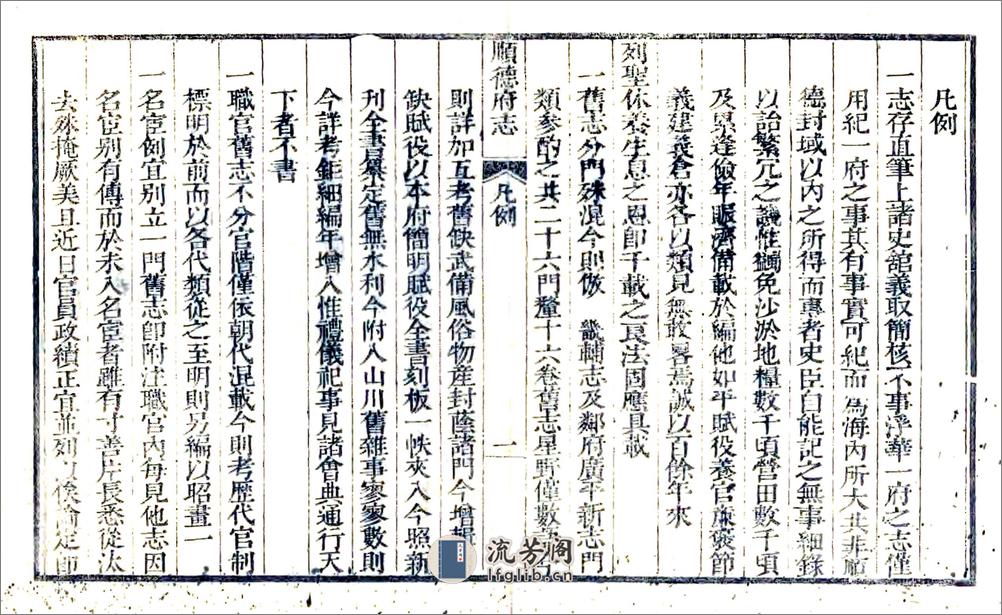 凡例
一志存直筆上諸史舘義取簡核不事浮華一府之志僅
用紀一府之事其有事實可紀而為海内所大共非順
德封域以内之所得而專者史臣自能記之無事細錄
以詒繁冗之譏惟蠲免沙淤地糧數千頃營田數千頃
及累逢儉年賑濟備載於編他如平賦役養官廉褒節
義建義倉亦各以類見無敢畧焉誠以百餘年來
列聖休養生息之恩即千載之良法固應具載
一舊志分門殊混今則倣 畿輔志及鄰府廣平新志門
類參酌之共二十六門釐十六卷舊志星野僅數
順德府志 凡例 一
則詳加互考舊缺武備風俗物産封蔭諸門今增輯
缺賦役以本府簡明賦役全書刻板一帙夾入今照新
刋全書纂定舊無水利今附入山川舊雜事寥寥數則
今詳考鉅細編年增入惟禮儀祀事見諸會典通行天
下者不書
一職官舊志不分官階僅依朝代混載今則考歷代官制
標明於前而以各代類從之至明則另編以昭畫一
一名宦例宜別立一門舊志卽附注職官内每見他志因
名宦別有傳而於未入名宦者雖有寸善片長悉從汰
去殊掩厥美且近日官員政績正宜並列以俟論定卽
流芳阁
lfglib.cn